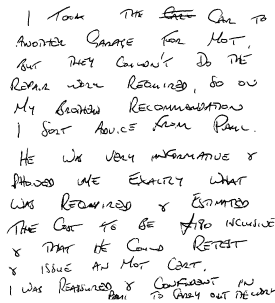 I TOOK THE CAR TO
ANOTHER GARAGE FOR MOT,
BUT THEY COULDN'T DO THE
REPAIR WORK REQUIRED, SO ON
MY BROTHERS RECOMMENDATION
I SORT ADVICE FROM PAUL.
HE WAS VERY INFORMATIVE &
SHOWED ME EXACTLY WHAT
WAS REQUIRED & ESTIMATED
THE COST TO BE £180 INCLUSIVE
& THAT HE COULD RETEST
& ISSUE AN MOT CERT.
I WAS REASSURED & CONFIDENT IN
PAUL TO CARRY OUT THE WORK